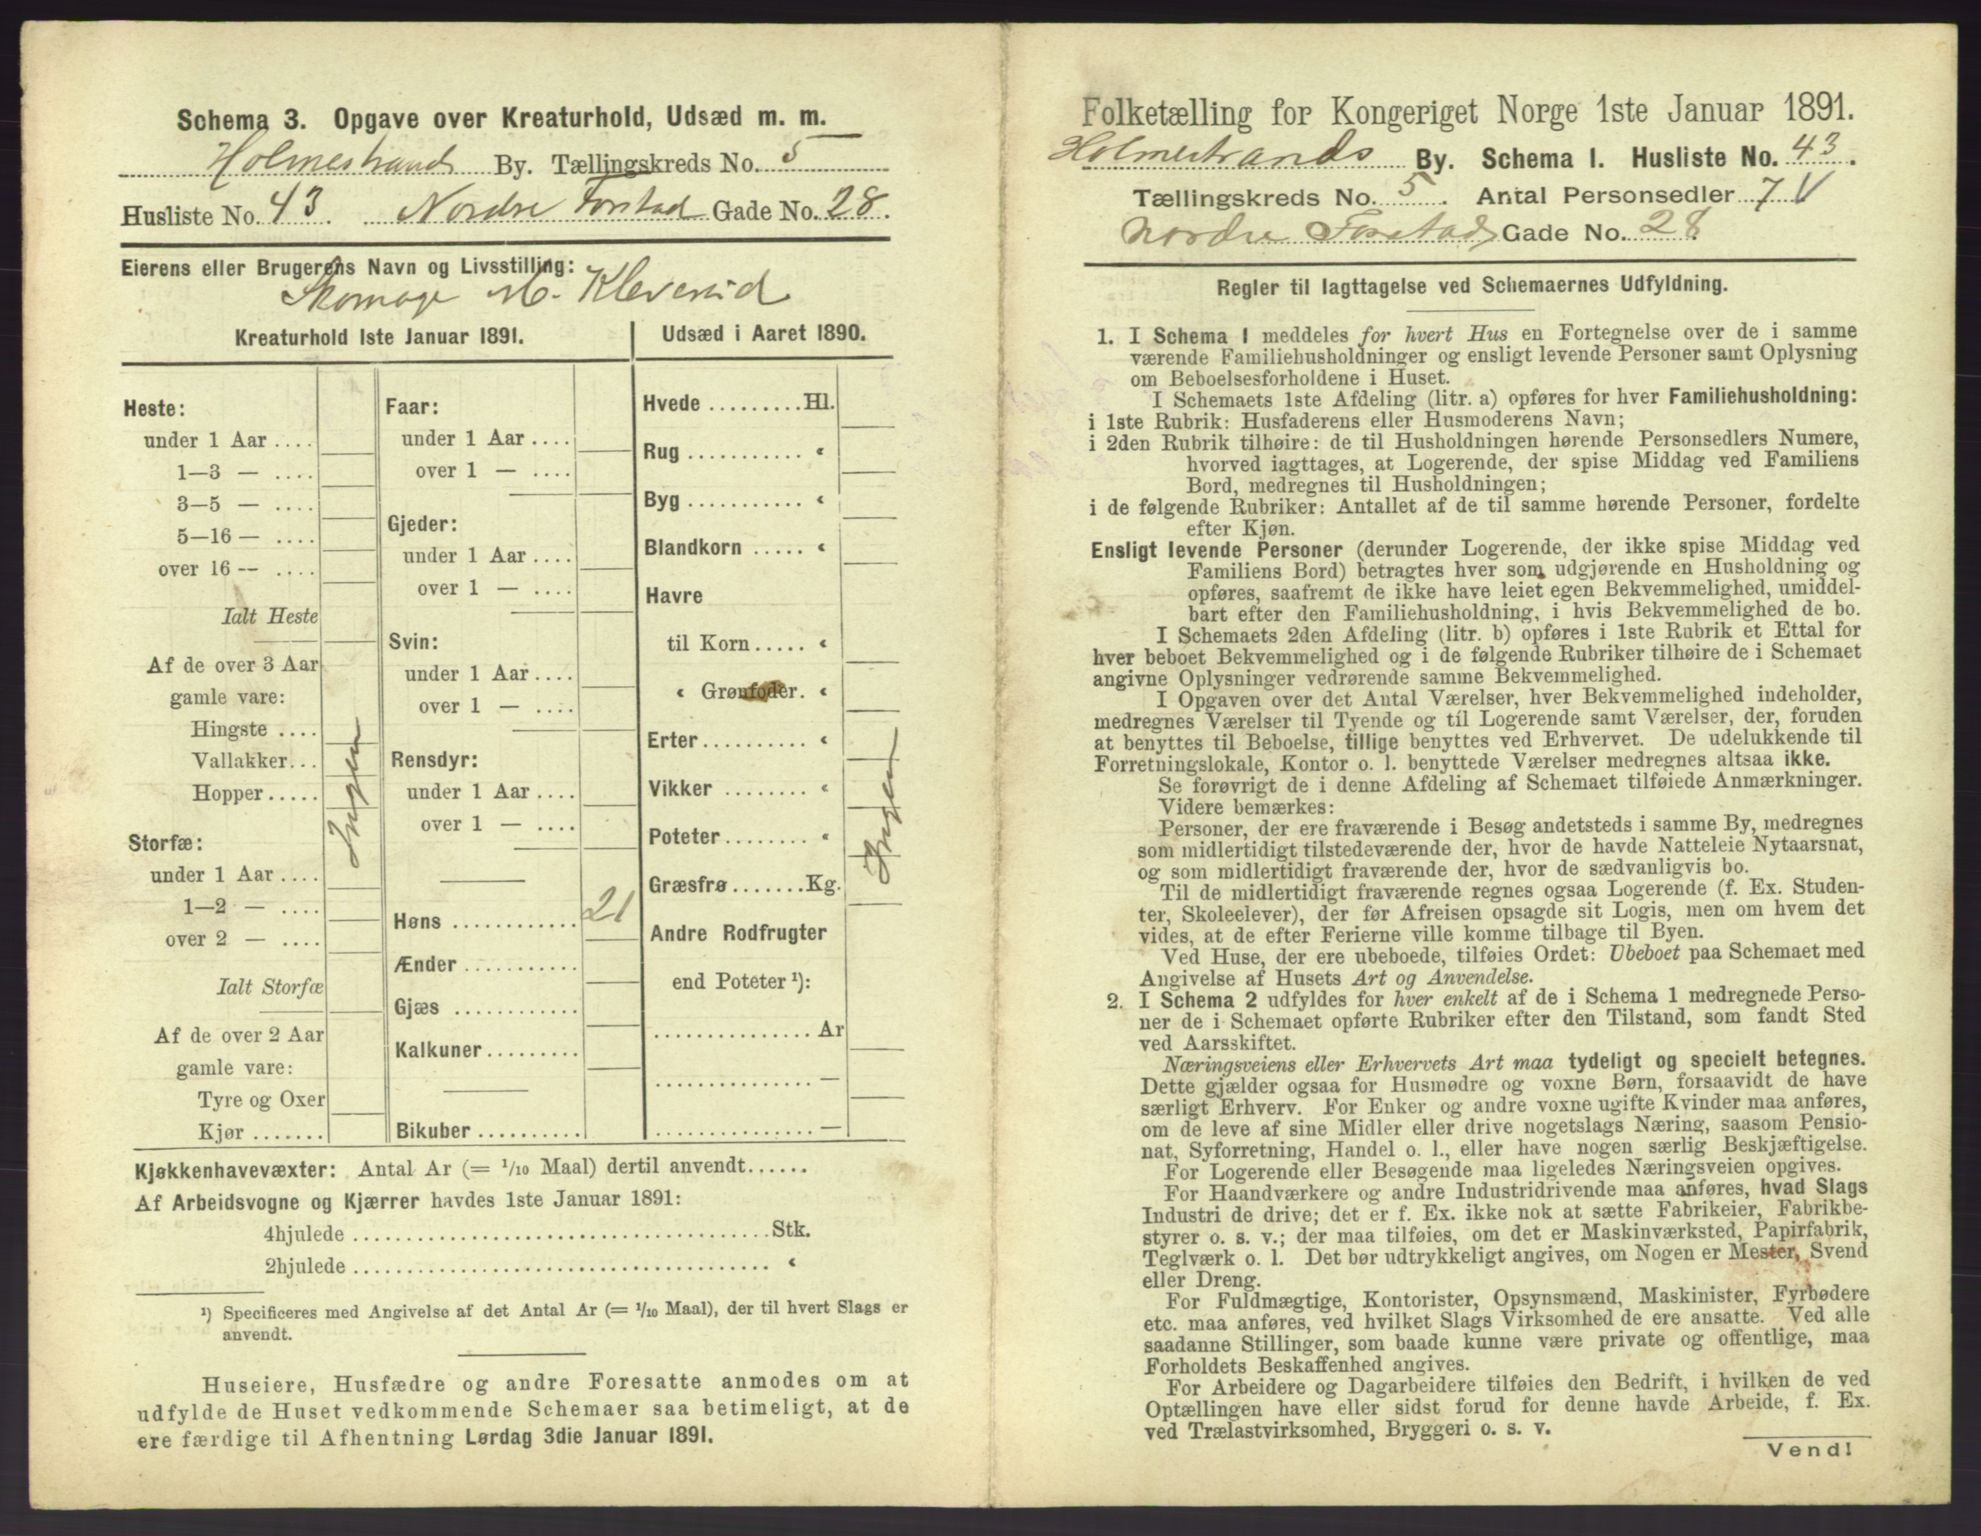 Schema 3. Opgave over Kreaturhold, Udsæd m. m.
Holmestrand By. Tællingskreds No. 5
Husliste No. 43. Nordre Forstad Gade No. 28.
Eierens eller Brugerens Navn og Livsstilling:
Skomager M. Kleverud
Kreaturhold 1ste Januar 1891.
Heste:
under 1 Aar ....
1—3 — ....
3—5 — ....
5—16 — ....
over 16 -- ....
Ialt Heste
Af de over 3 Aar
gamle vare:
Hingste ....
Vallakker...
Hopper.....
Ingen
Storfæ:
under 1 Aar ....
1—2 — ....
over 2 — ....
Ialt Storfæ
Af de over 2 Aar
gamle vare:
Tyre og Oxer
Kjør .......
Faar:
under 1 Aar ....
over 1 — ....
Gjeder:
under 1 Aar ....
over 1 — ....
Svin:
under 1 Aar ....
over 1 — ....
Rensdyr:
under 1 Aar ....
over 1 — ....
Høns ............ 21
Ænder ...........
Gjæs ............
Kalkuner.........
Bikuber ..........
Udsæd i Aaret 1890.
Hvede .........Hl.
Rug ........... “
Byg ........... “
Blandkorn ..... “
Havre
til Korn ..... “
“ Grønfoder. “
Erter.......... “
Vikker ........ “
Poteter........ “
Græsfrø.......Kg.
Ingen
Andre Rodfrugter
end Poteter ¹):
............... Ar
............... —
............... —
Kjøkkenhavevæxter: Antal Ar (= 1/10 Maal) dertil anvendt......
Af Arbeidsvogne og Kjærrer havdes 1ste Januar 1891:
4hjulede ........................................Stk.
2hjulede ........................................ “
¹) Specificeres med Angivelse af det Antal Ar (= 1/10 Maal), der til hvert Slags er
anvendt.
Huseiere, Husfædre og andre Foresatte anmodes om at
udfylde de Huset vedkommende Schemaer saa betimeligt, at de
ere færdige til Afhentning Lørdag 3die Januar 1891.
Folketælling for Kongeriget Norge 1ste Januar 1891.
Holmestrands By. Schema 1. Husliste No. 43.
Tællingskreds No. 5. Antal Personsedler 7 V
Nordre Forstads Gade No. 28
Regler til Iagttagelse ved Schemaernes Udfyldning.
1. I Schema 1 meddeles for hvert Hus en Fortegnelse over de i samme
værende Familiehusholdninger og ensligt levende Personer samt Oplysning
om Beboelsesforholdene i Huset.
I Schemaets 1ste Afdeling (litr. a) opføres for hver Familiehusholdning:
i 1ste Rubrik: Husfaderens eller Husmoderens Navn;
i 2den Rubrik tilhøire: de til Husholdningen hørende Personsedlers Numere,
hvorved iagttages, at Logerende, der spise Middag ved Familiens
Bord, medregnes til Husholdningen;
i de følgende Rubriker: Antallet af de til samme hørende Personer, fordelte
efter Kjøn.
Ensligt levende Personer (derunder Logerende, der ikke spise Middag ved
Familiens Bord) betragtes hver som udgjørende en Husholdning og
opføres, saafremt de ikke have leiet egen Bekvemmelighed, umiddel-
bart efter den Familiehusholdning, i hvis Bekvemmelighed de bo.
I Schemaets 2den Afdeling (litr. b) opføres i 1ste Rubrik et Ettal for
hver beboet Bekvemmelighed og i de følgende Rubriker tilhøire de i Schemaet
angivne Oplysninger vedrørende samme Bekvemmelighed.
I Opgaven over det Antal Værelser, hver Bekvemmelighed indeholder,
medregnes Værelser til Tyende og til Logerende samt Værelser, der, foruden
at benyttes til Beboelse, tillige benyttes ved Erhvervet. De udelukkende til
Forretningslokale, Kontor o. l. benyttede Værelser medregnes altsaa ikke.
Se forøvrigt de i denne Afdeling af Schemaet tilføiede Anmærkninger.
Videre bemærkes:
Personer, der ere fraværende i Besøg andetsteds i samme By, medregnes
som midlertidigt tilstedeværende der, hvor de havde Natteleie Nytaarsnat,
og som midlertidigt fraværende der, hvor de sædvanligvis bo.
Til de midlertidigt fraværende regnes ogsaa Logerende (f. Ex. Studen-
ter, Skoleelever), der før Afreisen opsagde sit Logis, men om hvem det
vides, at de efter Ferierne ville komme tilbage til Byen.
Ved Huse, der ere ubeboede, tilføies Ordet: Ubeboet paa Schemaet med
Angivelse af Husets Art og Anvendelse.
2. I Schema 2 udfyldes for hver enkelt af de i Schema 1 medregnede Perso-
ner de i Schemaet opførte Rubriker efter den Tilstand, som fandt Sted
ved Aarsskiftet.
Næringsveiens eller Erhvervets Art maa tydeligt og specielt betegnes.
Dette gjælder ogsaa for Husmødre og voxne Børn, forsaavidt de have
særligt Erhverv. For Enker og andre voxne ugifte Kvinder maa anføres,
om de leve af sine Midler eller drive nogetslags Næring, saasom Pensio-
nat, Syforretning, Handel o. l., eller have nogen særlig Beskjæftigelse.
For Logerende eller Besøgende maa ligeledes Næringsveien opgives.
For Haandværkere og andre Industridrivende maa anføres, hvad Slags
Industri de drive; det er f. Ex. ikke nok at sætte Fabrikeier, Fabrikbe-
styrer o. s. v.; der maa tilføies, om det er Maskinværksted, Papirfabrik,
Teglværk o. l. Det bør udtrykkeligt angives, om Nogen er Mester, Svend
eller Dreng.
For Fuldmægtige, Kontorister, Opsynsmænd, Maskinister, Fyrbødere
etc. maa anføres, ved hvilket Slags Virksomhed de ere ansatte. Ved alle
saadanne Stillinger, som baade kunne være private og offentlige, maa
Forholdets Beskaffenhed angives.
For Arbeidere og Dagarbeidere tilføies den Bedrift, i hvilken de ved
Optællingen have eller sidst forud for denne havde Arbeide, f. Ex.
ved Trælastvirksomhed, Bryggeri o. s. v.
Vend!